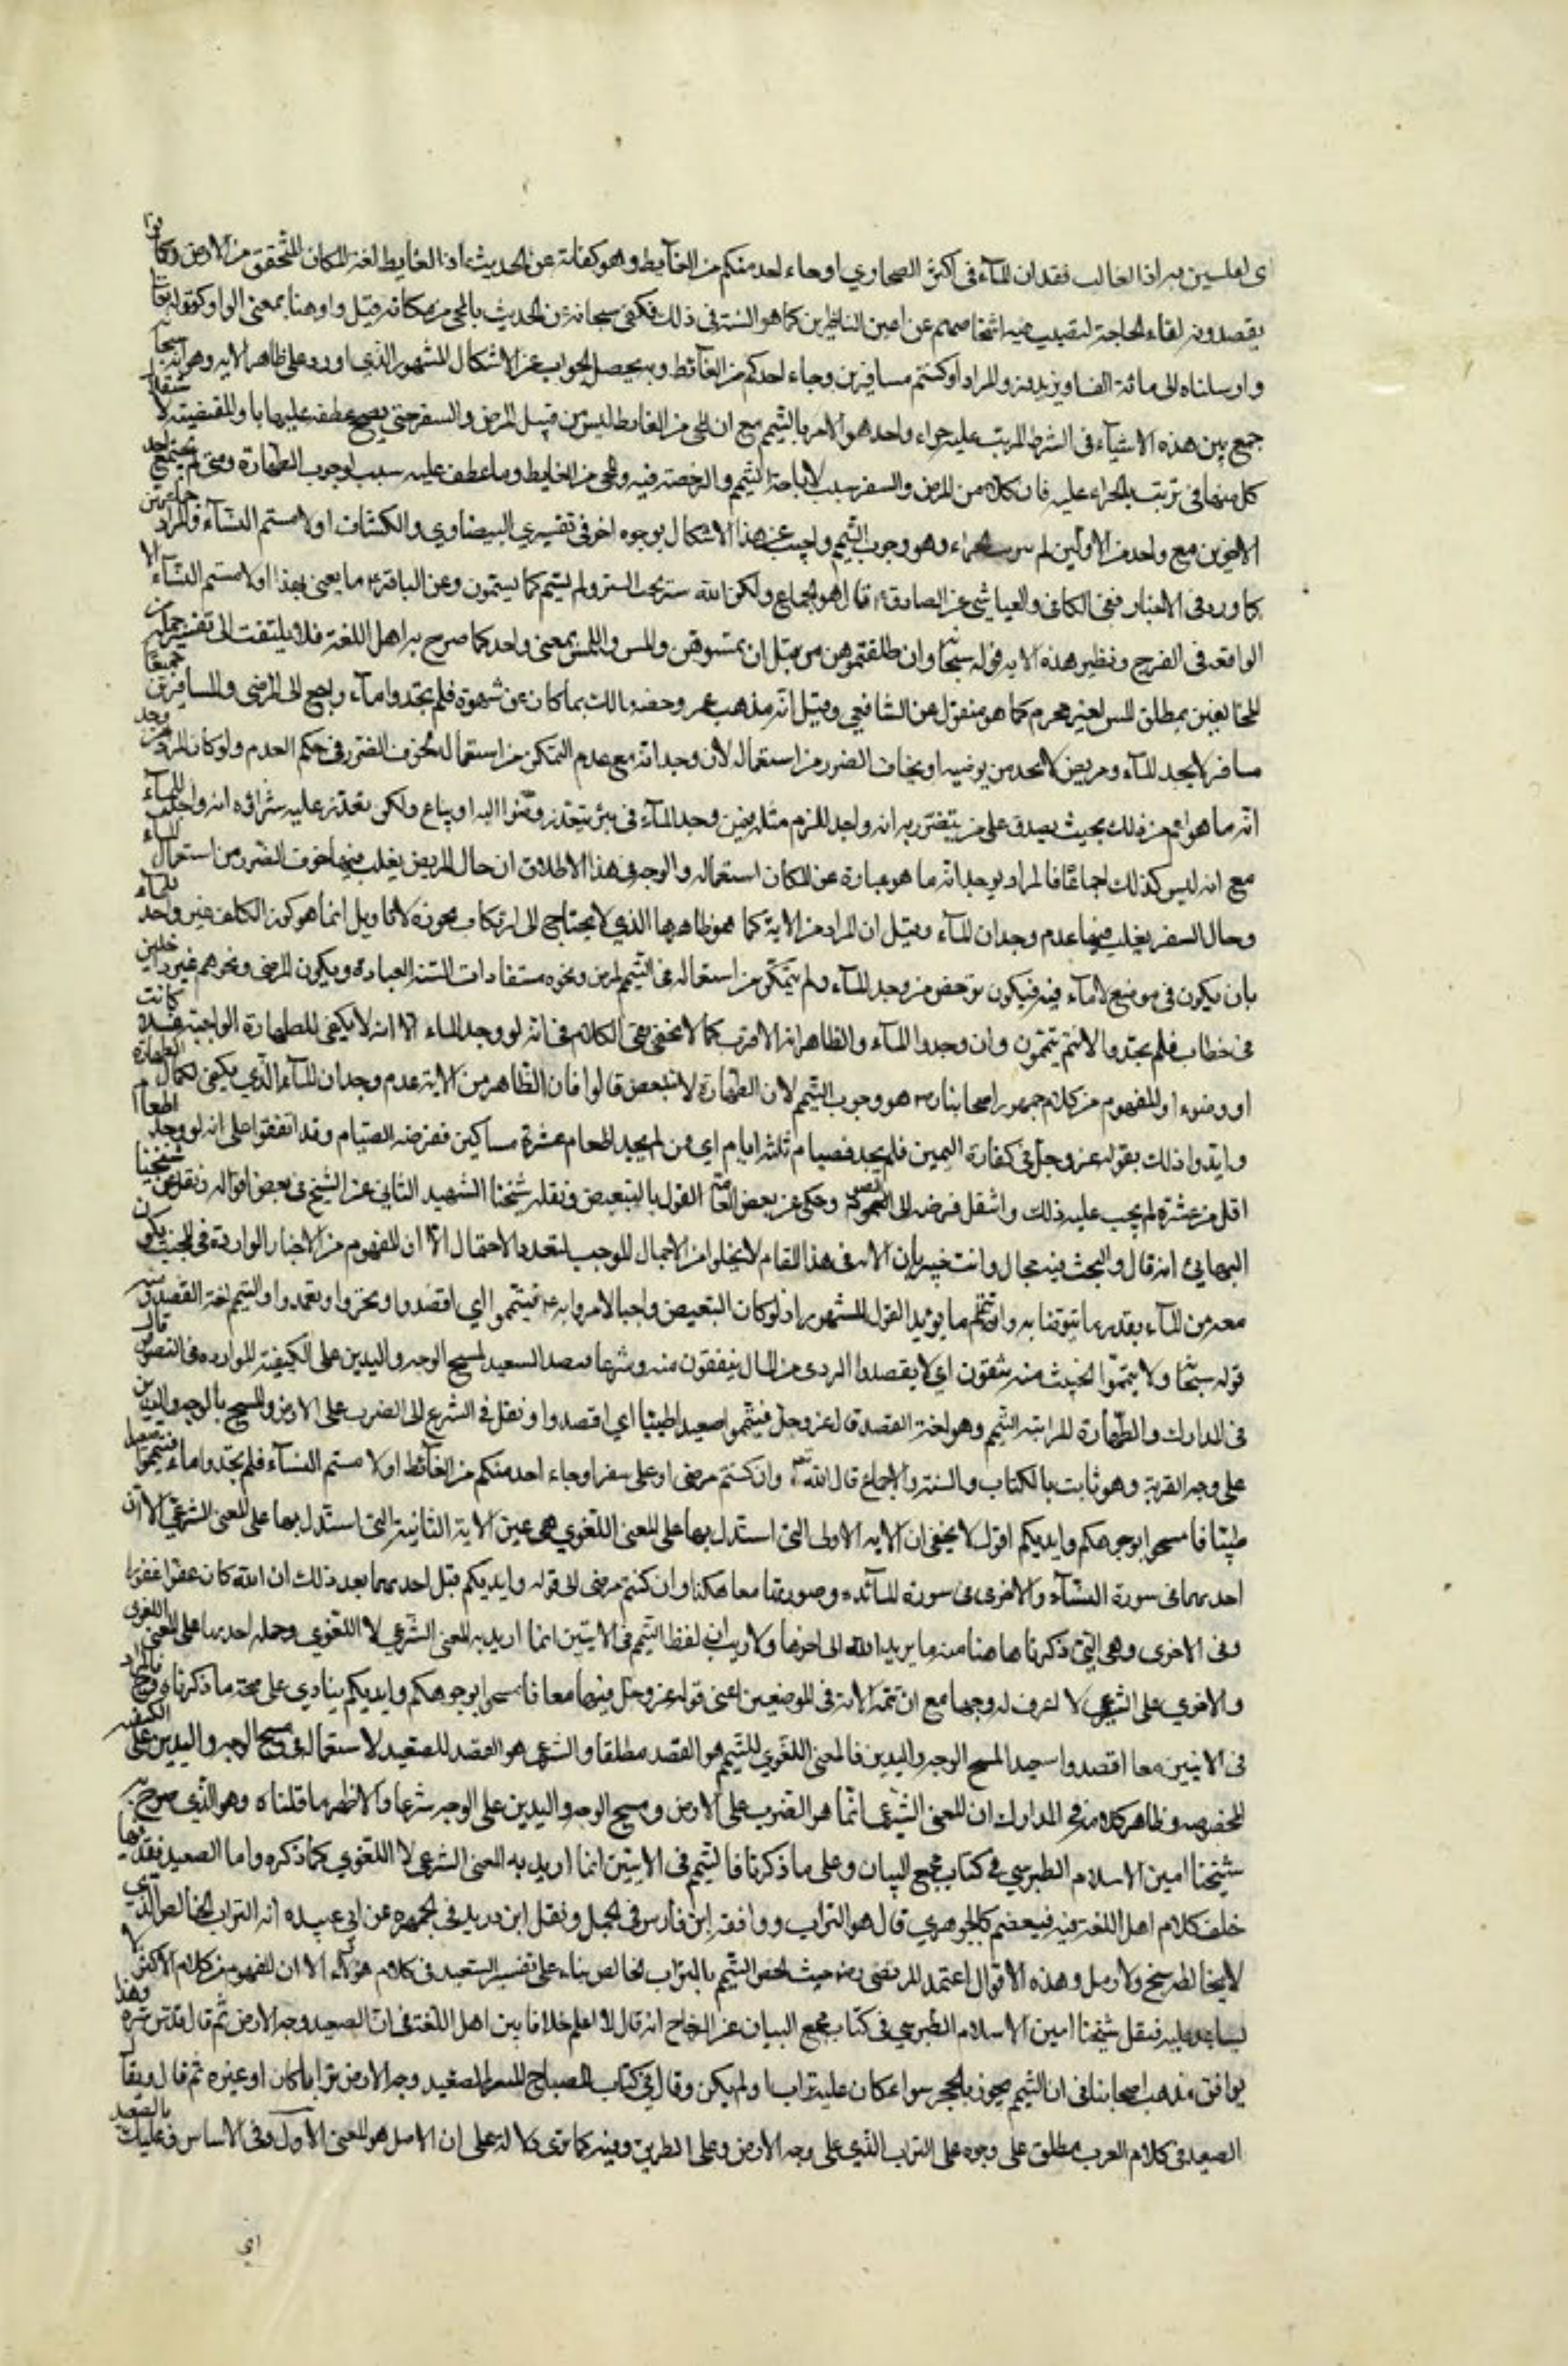 اى لعابسين به اذ الغالب فقدان المآء فى اكثر الصحارى او جاء احد منكم من الغآيط وهو كفاية عن الحديث اذ الغايط لغة المكان المنحقق من الارض وكانوا
يقصدونه لقضاء الحاجة لتغيب فيه اشخاصهم عن اعين الناظرين كما هو السنة فى ذلك فكنى سبحانه عن الحديث بالمجى من مكانه وقيل او هنا بمعنى الواو كقوله تعا
وارسلناه الى مائة الف او يزيدون والمراد او كنتم مسافرين وجاء احدكم من الغآئط وبه يحصل الجواب عن الاشكال المشهور الذى اورد على ظاهر الايه وهو انه سبحا
جمع بين هذه الاشيآء فى الشرط المرتب عليه جزاء واحد هو الامر بالتيمم مع ان المجى من الغايط ليس من قبيل المرض والسفر حتى يصح عطفه عليها باو المقتضية لاستقلال
كل منهما فى ترتب الجزاء عليه فان كلا من المرض والسفر سبب لاباحة التيمم والرخصة فيه والمجى من الغايط وما عطف عليه سبب لوجوب الطهارة ومتى لم يجتمع احد
الاخيرين مع واحد من الاولين لم يترتب الجزاء وهو وجوب التيمم واجيب عن هذا الاشكال بوجوه اخر فى تفسيرى البيضاوي والكشاف او لامستم النسآء والمراد جماعهن
كما ورد فى الاخبار ففى الكافى والعياشى عن الصادق ع قال هو الجماع ولكن الله ستير يحب الستر ولم يسم كما يسمون وعن الباقر ع ما يعنى بهذا او لامستم النسآء الا
الواقعه فى الفرج ونظير هذه الايه قوله سبحا وان طلقتموهن من قبل ان تمسوهن والمس واللمس بمعنى واحد كما صرح به اهل اللغة فلا يلتفت الى تفسير جمله من
المخالفين بمطلق المس لغير محرم كما هو منقول عن الشافعي وقيل انه مذهب عمر وخصه مالك بما كان عن شهوة فلم تجدوا مآء راجع الى المرضى والمسافرين جميعًا
مسافر لا يجد المآء ومريض لا يجد من يوضيه او يخاف الضرر من استعماله لان وجدانه مع عدم التمكن من استعماله لخوف الضرر فى حكم العدم ولو كان المراد من وجد
انه ما هو اعم من ذلك بحيث يصدق على من يتضرر به انه واجد للزم مثله فيمن وجد المآء فى بئر يتعذر وصوله اليه او يباع ولكن تعذر عليه شراؤه انه واجد للمآء
مع انه ليس كذلك اجماعًا فالمراد بوجدانه ما هو عبارة عن امكان استعماله والوجه فى هذا الاطلاق ان حال المريض يغلب فيها خوف الضرر من استعمال المآء
وحال السفر يغلب فيها عدم وجدان المآء وقيل ان المراد من الاية كما هو ظاهرها الذي لا يحتاج الى ارتكاب تجوز ولا تاويل انما هو كون المكلف غير واجد للمآء
بان يكون فى موضع لا مآء فيه فيكون ترخص من وجد المآء ولم يتمكن من استعماله فى التيمم لمرض ونحوه مستفادا من السنة العباده ويكون المرضى ونحوهم غير داخلين
فى خطاب فلم تجدوا لانهم يتيممون وان وجدوا المآء والظاهر انه الاقرب كما لا يخفى بقى الكلام فى انه لو وجد الماء الا انه لا يكفى للطهارة الواجبة غسلا كانت
او وضوء او المفهوم من كلام جمهور اصحابنا هو وجوب التيمم لان الطهارة لا تتبعض قالوا فان الظاهر من الاية عدم وجدان المآء الذي يكفى لكمال الطهارة
وايدوا ذلك بقوله عز وجل فى كفارة اليمين فلم يجد فصيام ثلثة ايام اي فمن لم يجد اطعام عشرة مساكين ففرضه الصيام وقد اتفقوا على انه لو وجد اطعام
اقل من عشرة لم يجب عليه ذلك وانتقل فرضه الى الصوم وحكى عن بعض العامة القول بالتبعيض ونقله شيخنا الشهيد الثاني عن الشيخ فى بعض اقواله ونقل عن شيخنا
البهائى انه قال وللبحث فيه مجال وانت خبير بان الاية فى هذا المقام لا يخلوا من الاجمال الموجب لتعدد الاحتمال الا ان المفهوم من الاخبار الواردة فى الجنب يكون
معه من المآء بقدر ما يتوضا به وانه يتيمم ما يؤيد القول المشهور اذ لو كان التبعيض واجبا لامروا به ع فتيمموا اي اقصدوا وتحروا وتعمدوا والتيمم لغة القصد ومنه
قوله سبحا ولا تيمموا الخبيث منه تنفقون اي لا تقصدوا الردى من المال تنفقون منه وشرعا قصد الصعيد لمسح الوجه واليدين على الكيفية الوارده فى النصوص قال
فى المدارك والطهارة الترابية التيمم وهو لغة القصد قال عز وجل فتيمموا صعيدا طيبا اي اقصدوا ونقل فى الشرع الى الضرب على الارض والمسح بالوجه واليدين
على وجه القربة وهو ثابت بالكتاب والسنة والاجماع قال الله تعالى وان كنتم مرضى او على سفر او جاء احد منكم من الغآئط او لامستم النسآء فلم تجدوا ماء فتيمموا صعيدا
طيبًا فامسحوا بوجوهكم وايديكم اقول لا يخفى ان الايه الاولى التى استدل بها على المعنى اللغوي هى عين الاية الثانية التى استدل بها على المعنى الشرعى الا ان
احديهما فى سورة النسآء والاخرى فى سورة المآئده وصورتها معا هكذا وان كنتم مرضى الى قوله وايديكم قبل احديهما بعد ذلك ان الله كان عفوا غفورا
وفى الاخرى وهى التى ذكرنا هاهنا منه ما يريد الله الى اخرها ولا ريب ان لفظ التيمم فى الايتين انما اريد به المعنى الشرعي لا اللغوي وحمله احديهما على المعنى اللغوى
والاخرى على الشرعي لا اعرف له وجها مع ان تتمة الاية فى الموضعين اعنى قوله عز وجل فيهما معا فامسحوا بوجوهكم وايديكم ينادي على صحة ما ذكرناه وان المراد
فى الايتين معا اقصدوا صعيدا لمسح الوجه واليدين فالمعنى اللغوي للتيمم هو القصد مطلقا والشرعى هو القصد للصعيد لاستعماله فى مسح الوجه واليدين على الكيفيه
المخصوصه وظاهر كلامه فى المدارك ان المعنى الشرعى انما هو الضرب على الارض ومسح الوجه واليدين على الوجه شرعا والاظهر ما قلناه وهو الذي صرح به
شيخنا امين الاسلام الطبرسي فى كتاب مجمع البيان وعلى ما ذكرنا فالتيمم فى الايتين انما اريد به المعنى الشرعى لا اللغوي كما ذكره واما الصعيد فقد
خلف كلام اهل اللغة فيه فبعضهم كالجوهري قال هو التراب ووافقه ابن فارس فى المجمل ونقل ابن دريد فى الجمهره عن ابى عبيده انه التراب الخالص الذي
لا يخالطه سبخ ولا رمل وهذه الاقوال اعتمد المرتضى رض حيث خص التيمم بالتراب الخالص بناء على تفسير الصعيد فى كلام هؤلاء الا ان المفهوم من كلام الاكثر لا
يساعد عليه فنقل شيخنا امين الاسلام الطبرسي فى كتاب مجمع البيان عن الزجاج انه قال لا اعلم خلافا بين اهل اللغة فى ان الصعيد وجه الارض ثم قال قدس سره وهذا
يوافق مذهب اصحابنا فى ان التيمم يجوز بالحجر سواء كان عليه تراب او لم يكن وقال فى كتاب المصباح المنير الصعيد وجه الارض ترابا كان او غيره ثم قال ويقال
الصعيد فى كلام العرب يطلق على وجوه على التراب الذي على وجه الارض وعلى الطريق وفيه كما ترى دلالة على ان الاصل هو المعنى الاول وفى الاساس وعليك بالصعيد
اى